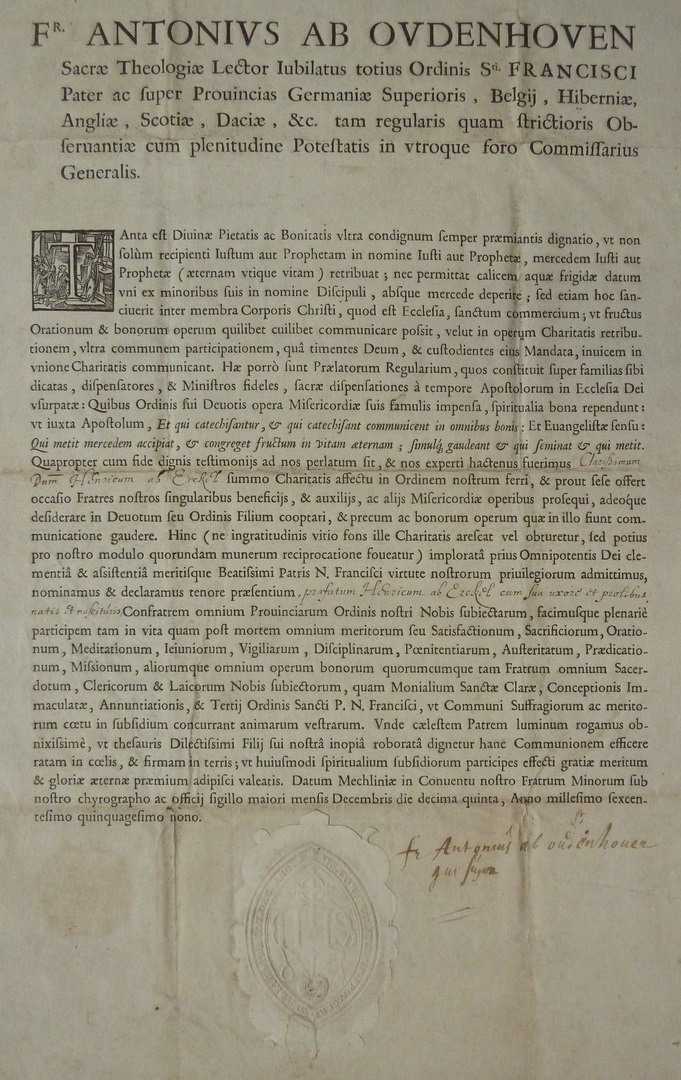 Fᴿ· ANTONIVS AB OVDENHOVEN
Sacræ Theologiæ Lector Iubilatus totius Ordinis Sᵗⁱ· FRANCISCI
Pater ac ſuper Prouincias Germaniæ Superioris , Belgij , Hiberniæ,
Angliæ , Scotiæ , Daciæ , &c. tam regularis quam ſtrictioris Ob-
ſeruantiæ cum plenitudine Poteſtatis in vtroque foro Commiſſarius
Generalis.
TAnta eſt Diuinæ Pietatis ac Bonitatis vltra condignum ſemper præmiantis dignatio , vt non
ſolùm recipienti Iuſtum aut Prophetam in nomine Iuſti aut Prophetæ , mercedem Iuſti aut
Prophetæ ( æternam vtique vitam ) retribuat ; nec permittat calicem aquæ frigidæ datum
vni ex minoribus ſuis in nomine Diſcipuli , abſque mercede deperire ; ſed etiam hoc ſan-
ciuerit inter membra Corporis Chriſti , quod eſt Eccleſia, ſanctum commercium ; vt fructus
Orationum & bonorum operum quilibet cuilibet communicare poſsit , velut in operum Charitatis retribu-
tionem , vltra communem participationem, quâ timentes Deum , & cuſtodientes eius Mandata, inuicem in
vnione Charitatis communicant. Hæ porrò ſunt Prælatorum Regularium , quos conſtituit ſuper familias ſibi
dicatas , diſpenſatores , & Miniſtros fideles , ſacræ diſpenſationes à tempore Apoſtolorum in Eccleſia Dei
vſurpatæ : Quibus Ordinis ſui Deuotis opera Miſericordiæ ſuis famulis impenſa, ſpiritualia bona rependunt :
vt iuxta Apoſtolum , Et qui catechiſantur, & qui catechiſant communicent in omnibus bonis ; Et Euangeliſtæ ſenſu :
Qui metit mercedem accipiat, & congreget fructum in vitam æternam ; ſimulq, gaudeant & qui ſeminat & qui metit.
Quapropter cum fide dignis teſtimonijs ad nos perlatum ſit , & nos experti hactenus fuerimus Clarissimum
Dnm Henricum ab Erckel ſummo Charitatis affectu in Ordinem noſtrum ferri , & prout ſeſe offert
occaſio Fratres noſtros ſingularibus beneficijs , & auxilijs, ac alijs Miſericordiæ operibus proſequi , adeòque
deſiderare in Deuotum ſeu Ordinis Filium cooptari , & precum ac bonorum operum quæ in illo fiunt com-
municatione gaudere. Hinc ( ne ingratitudinis vitio fons ille Charitatis areſcat vel obturetur, ſed potius
pro noſtro modulo quorundam munerum reciprocatione foueatur ) imploratâ priùs Omnipotentis Dei cle-
mentiâ & aſsiſtentiâ meritiſque Beatiſsimi Patris N. Franciſci virtute noſtrorum priuilegiorum admittimus,
nominamus & declaramus tenore præſentium , præfatum Henricum ab Erckel cum sua uxore et prolibus
natis et nascituris Confratrem omnium Prouinciarum Ordinis noſtri Nobis ſubiectarum, facimuſque plenariè
participem tam in vita quam poſt mortem omnium meritorum ſeu Satisfactionum , Sacrificiorum, Oratio-
num , Meditationum , Ieiuniorum , Vigiliarum , Diſciplinarum , Pœnitentiarum , Auſteritatum , Prædicatio-
num , Miſsionum , aliorumque omnium operum bonorum quorumcumque tam Fratrum omnium Sacer-
dotum , Clericorum & Laicorum Nobis ſubiectorum , quam Monialium Sanctæ Claræ , Conceptionis Im-
maculatæ , Annuntiationis , & Tertij Ordinis Sancti P. N. Franciſci , vt Communi Suffragiorum ac merito-
rum cœtu in ſubſidium concurrant animarum veſtrarum. Vnde cæleſtem Patrem luminum rogamus ob-
nixiſsimè , vt theſauris Dilectiſsimi Filij ſui noſtrâ inopiâ roboratâ dignetur hanc Communionem efficere
ratam in cœlis , & firmam in terris ; vt huiuſmodi ſpiritualium ſubſidiorum participes effecti gratiæ meritum
& gloriæ æternæ præmium adipiſci valeatis. Datum Mechliniæ in Conuentu noſtro Fratrum Minorum ſub
noſtro chyrographo ac officij ſigillo maiori menſis Decembris die decima quinta , Anno milleſimo ſexcen-
teſimo quinquageſimo nono.
fr Antonius ab oudenhouen